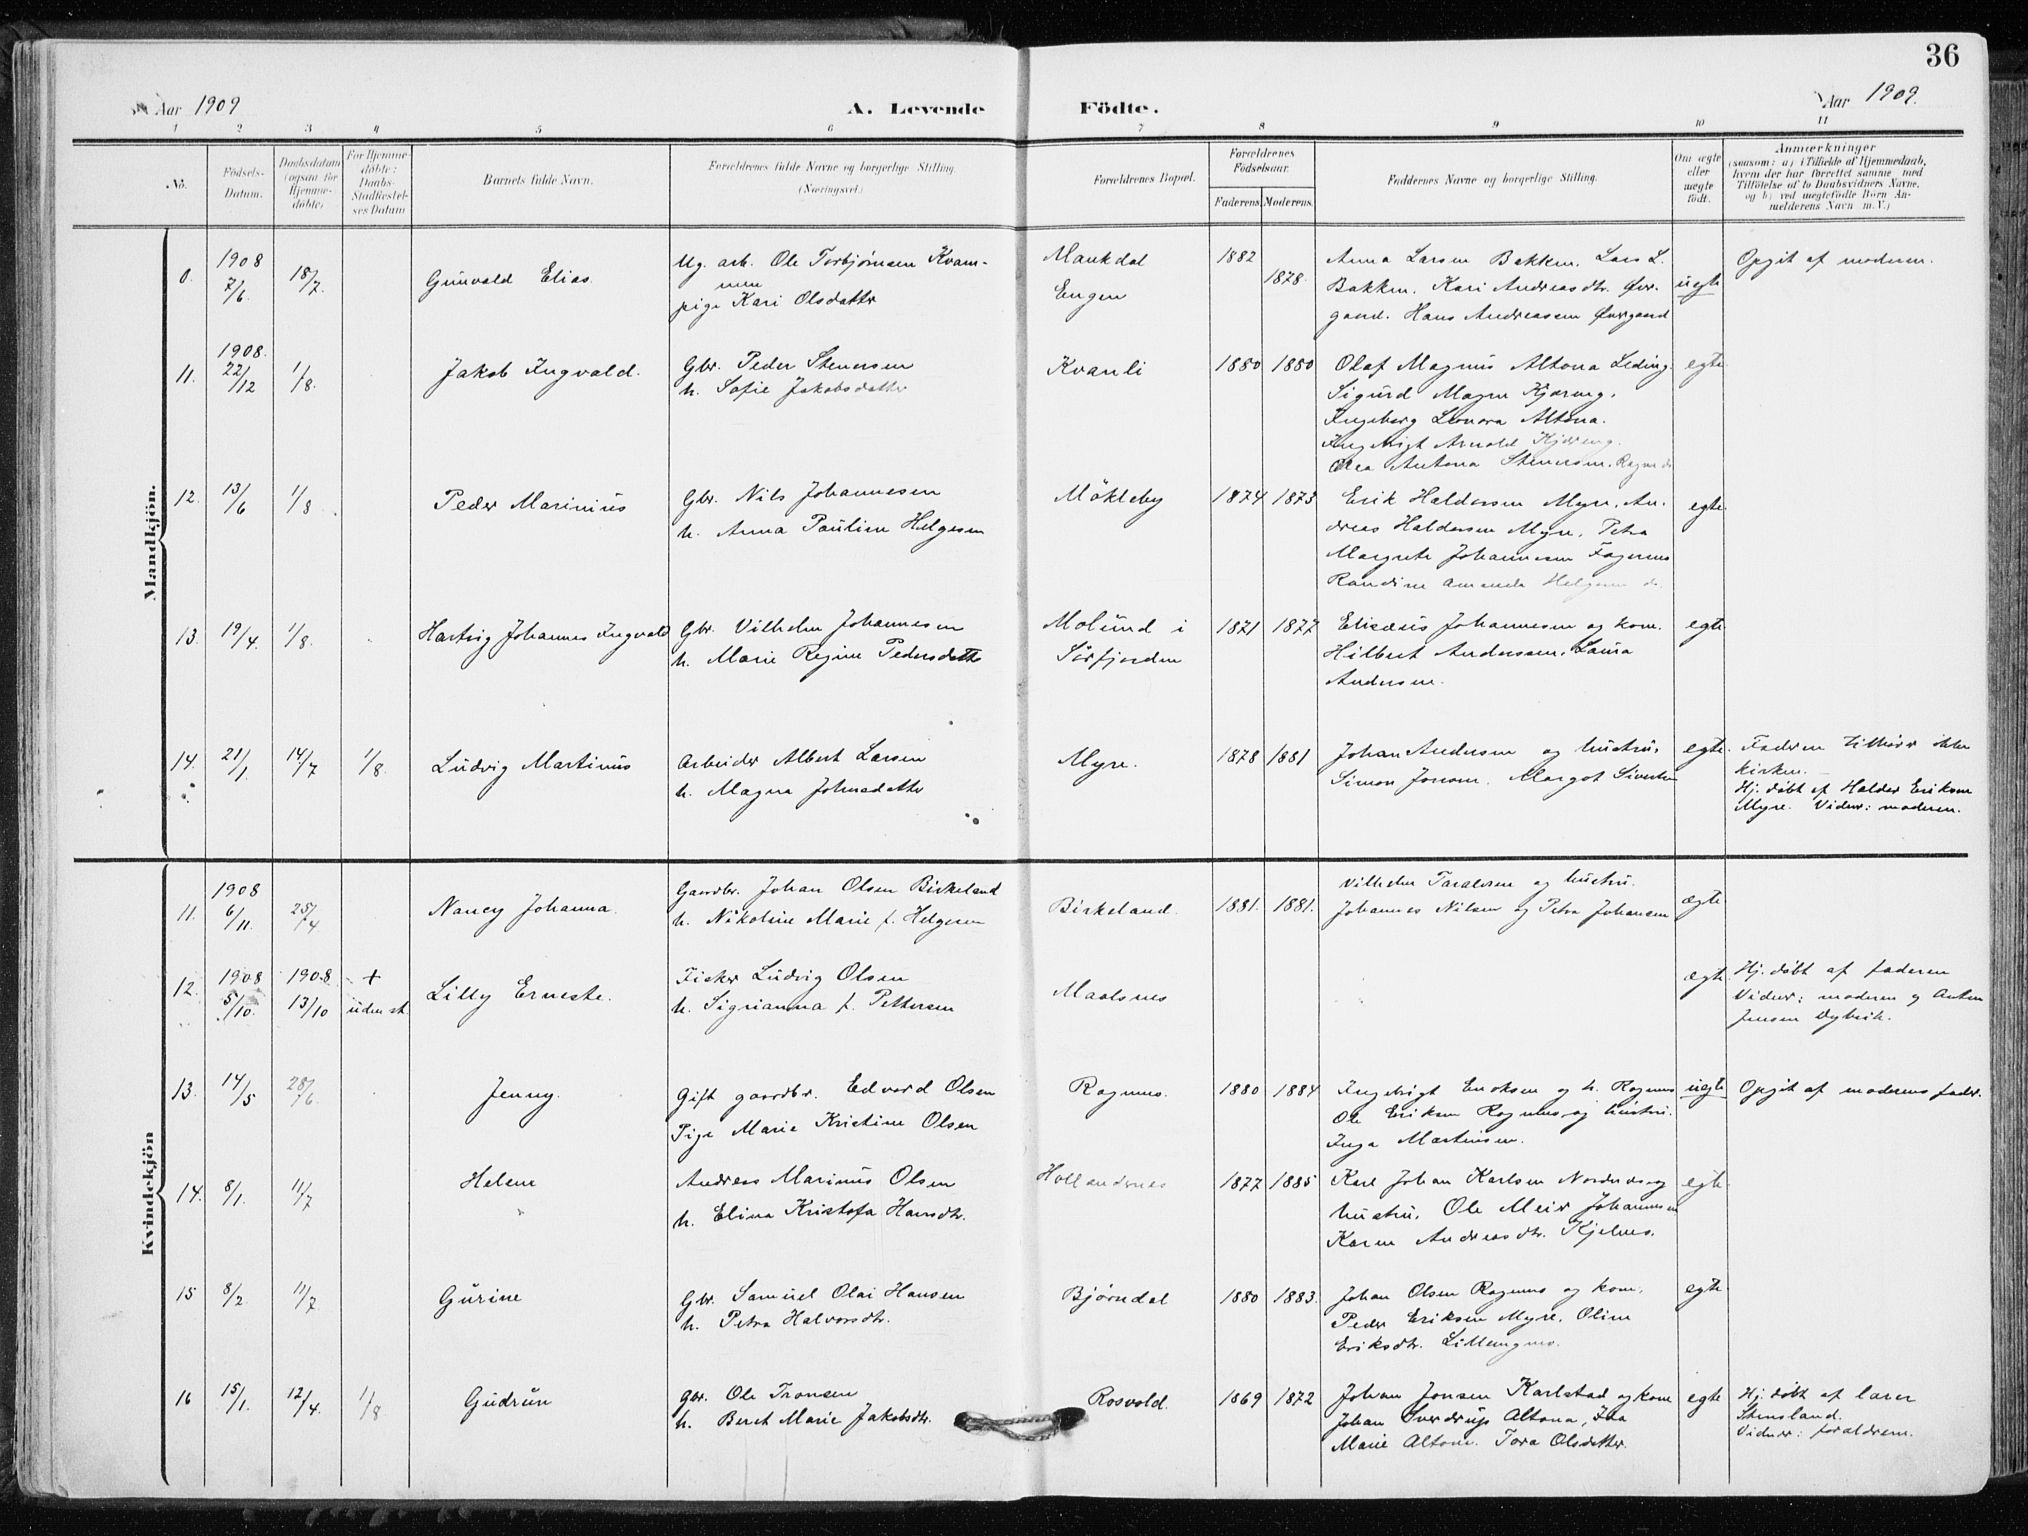 36
Aar 1909
A. Levende Födte.
Aar 1909.
1 2 3 4 5 6 7 8 9 10 11
No.
Födsels-Datum.
Daabsdatum (ogsaa for Hjemme-döbte)
For Hjemme-döbte: Daabs-Stadfæstel-ses Datum
Barnets fulde Navn.
Forældrenes fulde Navne og borgerlige Stilling (Næringsvei)
Forældrenes Bopæl.
Forældrenes Födselsaar.
Faderens. Moderens.
Faddernes Navne og borgerlige Stilling.
Om ægte eller uægte födt.
Anmærkninger
(saasom: a) i Tilfælde af Hjemmedaab,
hvem der har forrettet samme med
Tilföielse af to Daabsvidners Navne,
og b) ved uægtefödte Börn An-
melderens Navn m. V.)
Mandkjön.
1908 7/6. 18/7. Gunvald Elias.
Ug. arb. Ole Torbjørnsen Kvam-
men
pige Kari Olsdatter
Maukdal
Engen
1882 1878.
Anna Larsen Bakken. Lars L.
Bakken. Kari Andreasdtr. Øver-
gaard. Hans Andreassen Øvergaard
uegte
Opgit af moderen.
11. 1908. 22/12 1/8. Jakob Ingvald.
Gbr. Peder Stenersen
h. Sofie Jakobsdatter
Kvanli
1880 1880
Olaf Magnus Altona Leding.
Sigurd Magne Kjæreng.
Ingeborg Leonora Altona.
Ingebrigt Arnold Kjæreng.
Antona Stenersen.
egte
12. 13/6 1/8 Peder Marinius
Gbr. Nils Johannesen
h. Anna Pauline Helgesen
Møkleby
1874 1873
Erik Haldorsen Myre. An-
dreas Haldorsen Myre. Petra
Margrete Johannesen Fagernes
Randine Amanda Helgesen
egte
13. 19/4. 1/8. Hartvig Johannes Ingvald
Gbr. Vilhelm Johannesen
h. Marie Regine Pedersdatter
Molund i
Sørfjorden
1871 1877
Elisæus Johannesen og kone.
Hilbert Anderssen. Laura
Andersen.
egte
14. 21/1 14/7 1/8. Ludvig Martinus
Arbeider Albert Larsen
h. Magna Johnsdatter
Myre.
1878 1881
Johan Andersen og hustru,
Simon Jonsen. Margot Sivertsen
egte
Faderen tilhører ikke
kirken.
Hj. døbt af Haldor Eriksen
Myre. Vidner: moderen.
Kvindekjön
11. 1908 6/11. 25/4 Nancy Johanna.
Gaardbr. Johan Olsen Birkeland
h. Nikoline Marie f. Helgesen
Birkeland.
1881. 1881.
Vilhelm Taraldsen og hustru.
Johannes Nilsen og Petra Johansen
ægte
12. 1908 5/10. 1908 13/10 + uden st. Lilly Erneste.
Fisker Ludvig Olsen
h. Sigrianna f. Pettersen
Maalsnes
ægte
Hj. døbt af faderen
Vidner: moderen og Anton
Jensen Dybvik.
13. 14/5 28/6. Jenny.
Gift gaardbr. Edvard Olsen
Pige Marie Kristine Olsen
Rognnes.
1880 1884
Ingebrigt Eriksen og h. Rognnes
Ole Eriksen Rognnes og hustru.
Inga Martinsen.
uegte
Opgit af moderens fader.
14. 8/1. 11/7 Helene
Andreas Marinus Olsen
h. Elina Kristofa Hansdtr.
Hollendernes
1877 1885
Karl Johan Karlsen Nordnes og
hustru. Ole Meier Johannesen
Karen Andreasdtr. Kjelnes.
egte
15 8/2 11/7 Gurine
Gbr. Samuel Olai Hansen
h. Petra Halvorsdtr.
Bjørndal
1880 1883.
Johan Olsen Rognnes og kone.
Peder Eriksen Myre. Oline
Eriksdtr. Lillemynes.
egte
16 15/1. 12/4. 1/8 Gudrun
Gbr. Ole Tronsen
h. Beret Marie Jakobsdtr.
Rosvold.
1869 1872
Johan Jonsen Karlstad og kone
Johan Sverdrup Altona, Ida
Marie Altona. Tora Olsdatter.
egte
Hj. døbt af lærer
Stensland.
Vidner: forældrene.